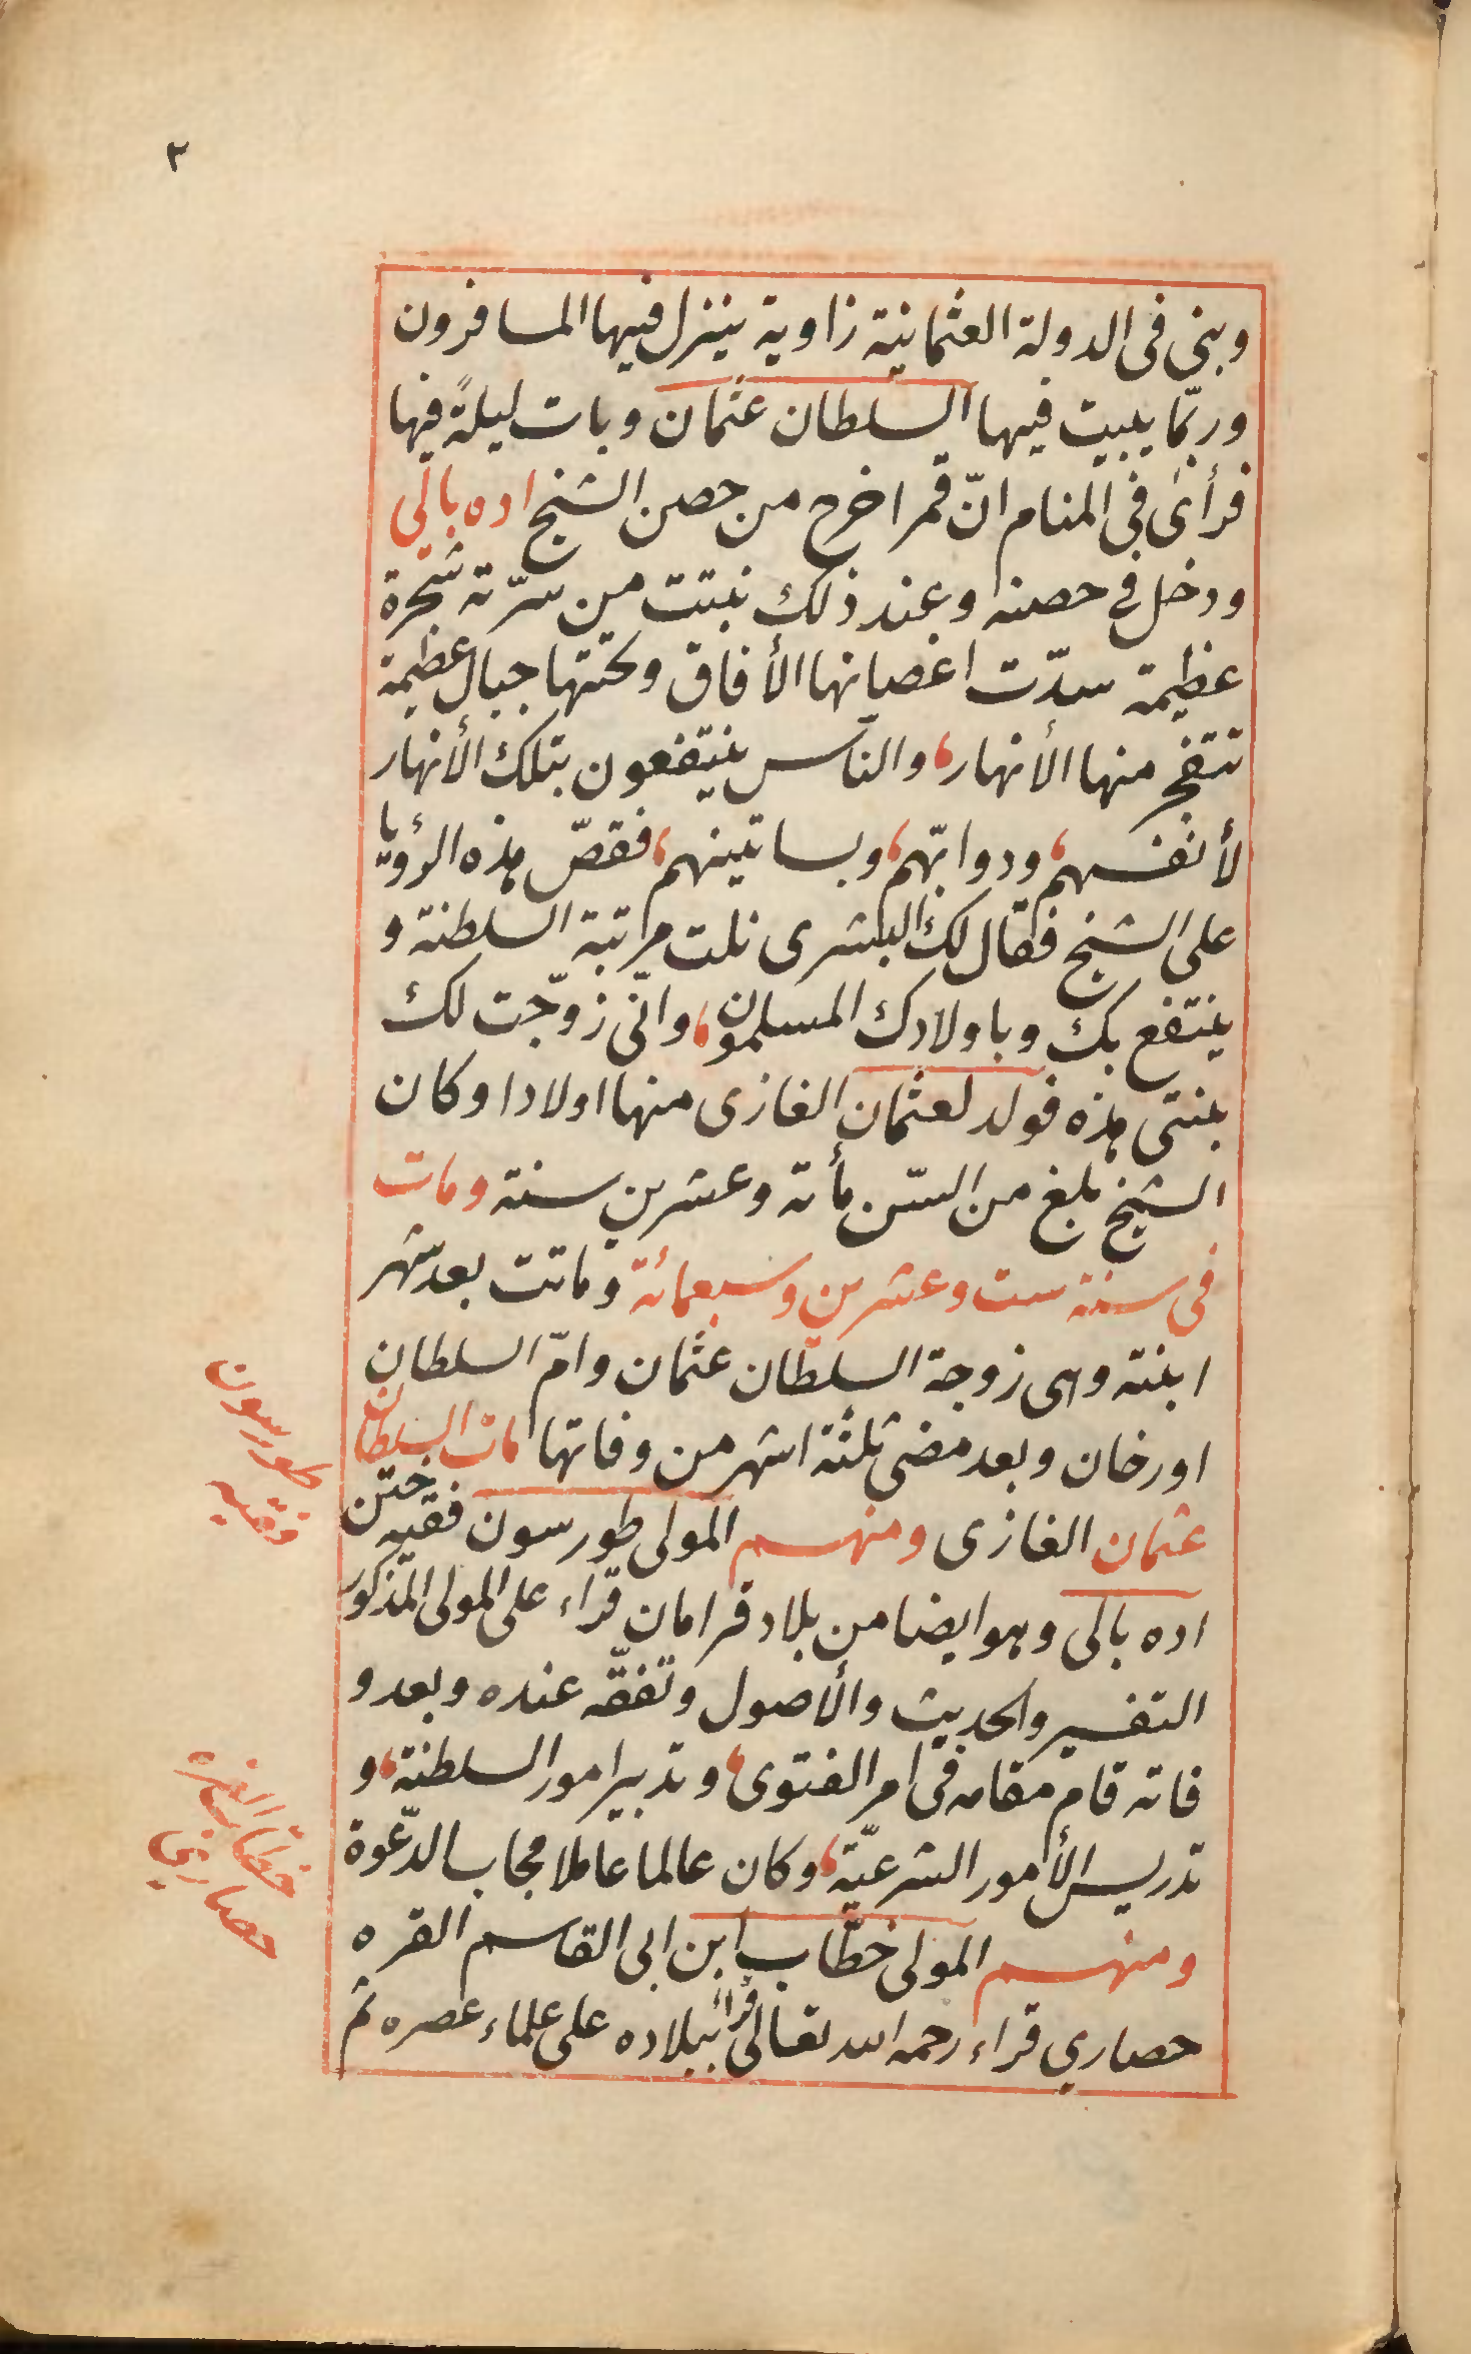 ٣
وبنى فى الدولة العثمانية زاوية ينزل فيها المسافرون
وربّما يبيت فيها السلطان عثمان وبات ليلةً فيها
فرأى فى المنام انّ قمرا خرج من حصن الشيخ اده بالى
ودخل فى حصنه وعند ذلك نبتت من سرّته شجرة
عظيمة سدّت اغصانها الأفاق وتحتها جبال عظيمة
تتفجر منها الأنهار، والناس ينتفعون بتلك الأنهار
لأنفسهم، ودوابّهم، وبساتينهم، فقصّ هذه الرؤيا
على الشيخ فقال لك البشرى نلت مرتبة السلطنة و
ينتفع بك وباولادك المسلمون، وانّى زوّجت لك
بنتى هذه فولد لعثمان الغازى منها اولادا وكان
الشيخ بلغ من السّن مأته وعشرين سنة ومات
فى سنة ست وعشرين وسبعمائة وماتت بعد شهر
ابنته وهى زوجة السلطان عثمان وامّ السلطان
اورخان وبعد مضى ثلثة اشهر من وفاتها مات السلطان
عثمان الغازى ومنهم المولى طورسون فقيه ختن
اده بالى وهو ايضا من بلاد قرامان قراء على المولى المذكور
التفسير والحديث والأصول وتفقّه عنده وبعد و
فاته قام مقامه فى امر الفتوى، وتدبير امور السلطنة، و
تدريس الأمور الشرعيّة، وكان عالما عاملا مجاب الدّعوة
ومنهم المولى خطّاب ابن ابى القاسم القره
حصاري قراء رحمه الله تعالى قرأ ببلاده على علماء عصره ثم
طورسون
فقيه
خطاب القره
حصاري